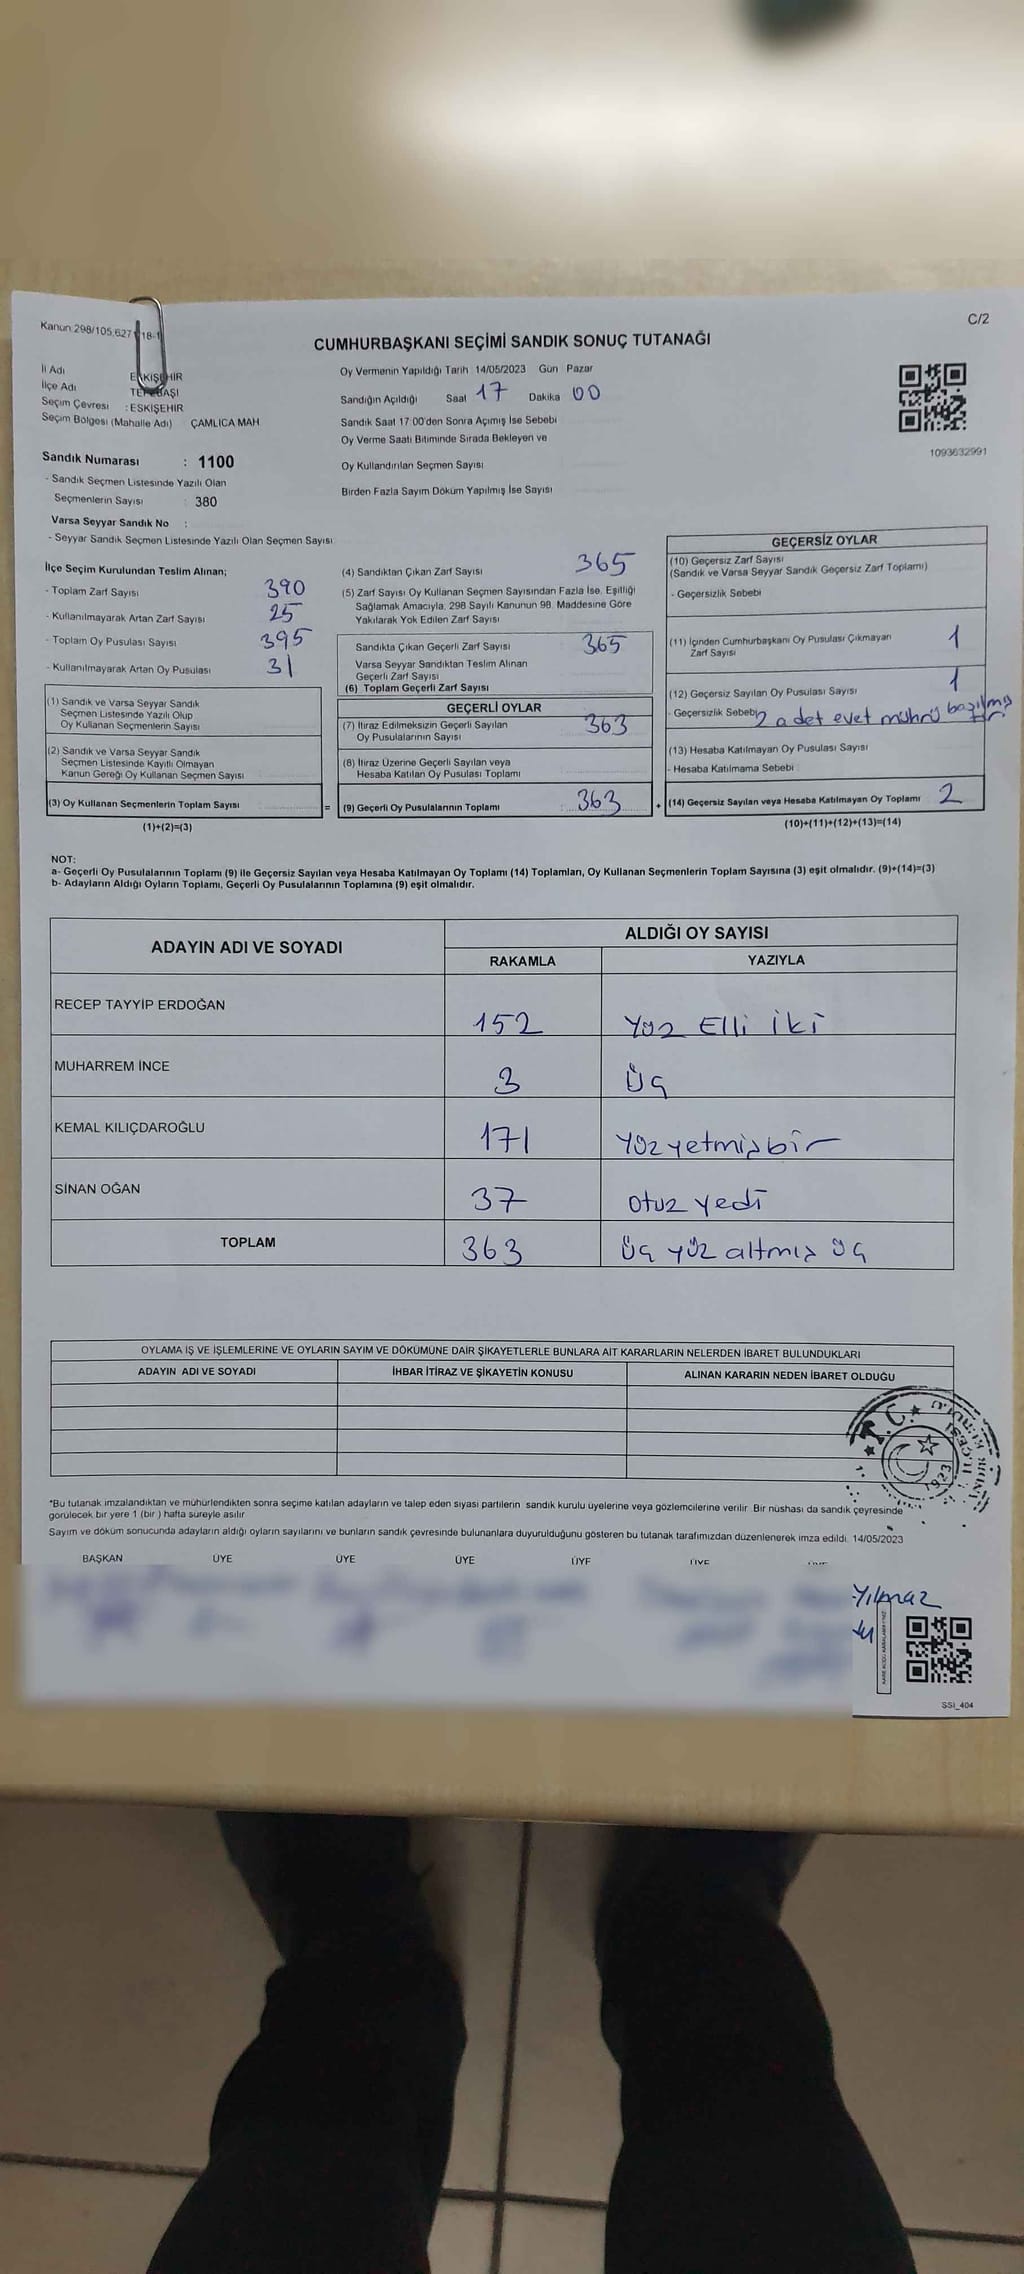 Kanun 298/105,627
18-1
C/2
CUMHURBAŞKANI SEÇİMİ SANDIK SONUÇ TUTANAĞI
İl Adı ESKİŞEHİR
İlçe Adı TEPEBAŞI
Seçim Çevresi : ESKİŞEHİR
Seçim Bölgesi (Mahalle Adı) ÇAMLICA MAH
Sandık Numarası : 1100
- Sandık Seçmen Listesinde Yazılı Olan
Seçmenlerin Sayısı 380
Varsa Seyyar Sandık No :
- Seyyar Sandık Seçmen Listesinde Yazılı Olan Seçmen Sayısı
Oy Vermenin Yapıldığı Tarih 14/05/2023 Gün Pazar
Sandığın Açıldığı Saat 17 Dakika 00
Sandık Saat 17 00'den Sonra Açılmış İse Sebebi
Oy Verme Saati Bitiminde Sırada Bekleyen ve
Oy Kullandırılan Seçmen Sayısı
Birden Fazla Sayım Döküm Yapılmış İse Sayısı
1093632991
İlçe Seçim Kurulundan Teslim Alınan;
- Toplam Zarf Sayısı 390
- Kullanılmayarak Artan Zarf Sayısı 25
- Toplam Oy Pusulası Sayısı 395
- Kullanılmayarak Artan Oy Pusulası 31
(1) Sandık ve Varsa Seyyar Sandık
Seçmen Listesinde Yazılı Olup
Oy Kullanan Seçmenlerin Sayısı
(2) Sandık ve Varsa Seyyar Sandık
Seçmen Listesinde Kayıtlı Olmayan
Kanun Gereği Oy Kullanan Seçmen Sayısı
(3) Oy Kullanan Seçmenlerin Toplam Sayısı
=
(1)+(2)=(3)
(4) Sandıktan Çıkan Zarf Sayısı 365
(5) Zarf Sayısı Oy Kullanan Seçmen Sayısından Fazla İse, Eşitliği
Sağlamak Amacıyla, 298 Sayılı Kanunun 98. Maddesine Göre
Yakılarak Yok Edilen Zarf Sayısı
Sandıkta Çıkan Geçerli Zarf Sayısı 365
Varsa Seyyar Sandıktan Teslim Alınan
Geçerli Zarf Sayısı
(6) Toplam Geçerli Zarf Sayısı
GEÇERLİ OYLAR
(7) İtiraz Edilmeksizin Geçerli Sayılan
Oy Pusulalarının Sayısı 363
(8) İtiraz Üzerine Geçerli Sayılan veya
Hesaba Katılan Oy Pusulası Toplamı
(9) Geçerli Oy Pusulalarının Toplamı 363
+
GEÇERSİZ OYLAR
(10) Geçersiz Zarf Sayısı
(Sandık ve Varsa Seyyar Sandık Geçersiz Zarf Toplamı)
- Geçersizlik Sebebi
(11) İçinden Cumhurbaşkanı Oy Pusulası Çıkmayan
Zarf Sayısı 1
(12) Geçersiz Sayılan Oy Pusulası Sayısı 1
- Geçersizlik Sebebi 2 adet evet mührü basılmıştır
(13) Hesaba Katılmayan Oy Pusulası Sayısı
- Hesaba Katılmama Sebebi
(14) Geçersiz Sayılan veya Hesaba Katılmayan Oy Toplamı 2
(10)+(11)+(12)+(13)=(14)
NOT:
a- Geçerli Oy Pusulalarının Toplamı (9) ile Geçersiz Sayılan veya Hesaba Katılmayan Oy Toplamı (14) Toplamları, Oy Kullanan Seçmenlerin Toplam Sayısına (3) eşit olmalıdır. (9)+(14)=(3)
b- Adayların Aldığı Oyların Toplamı, Geçerli Oy Pusulalarının Toplamına (9) eşit olmalıdır.
ADAYIN ADI VE SOYADI
ALDIĞI OY SAYISI
RAKAMLA YAZIYLA
RECEP TAYYİP ERDOĞAN 152 Yüz Elli iki
MUHARREM İNCE 3 Üç
KEMAL KILIÇDAROĞLU 171 Yüz yetmiş bir
SİNAN OĞAN 37 otuz yedi
TOPLAM 363 Üç yüz altmış üç
OYLAMA İŞ VE İŞLEMLERİNE VE OYLARIN SAYIM VE DÖKÜMÜNE DAİR ŞİKAYETLERLE BUNLARA AİT KARARLARIN NELERDEN İBARET BULUNDUKLARI
ADAYIN ADI VE SOYADI İHBAR İTİRAZ VE ŞİKAYETİN KONUSU ALINAN KARARIN NEDEN İBARET OLDUĞU
T.C.
1923
*Bu tutanak imzalandıktan ve mühürlendikten sonra seçime katılan adayların ve talep eden siyasi partilerin sandık kurulu üyelerine veya gözlemcilerine verilir. Bir nüshası da sandık çevresinde
görülecek bir yere 1 (bir ) hafta süreyle asılır
Sayım ve döküm sonucunda adayların aldığı oyların sayılarını ve bunların sandık çevresinde bulunanlara duyurulduğunu gösteren bu tutanak tarafımızdan düzenlenerek imza edildi. 14/05/2023
BAŞKAN ÜYE ÜYE ÜYE ÜYE ÜYE
Yılmaz
SSI_404